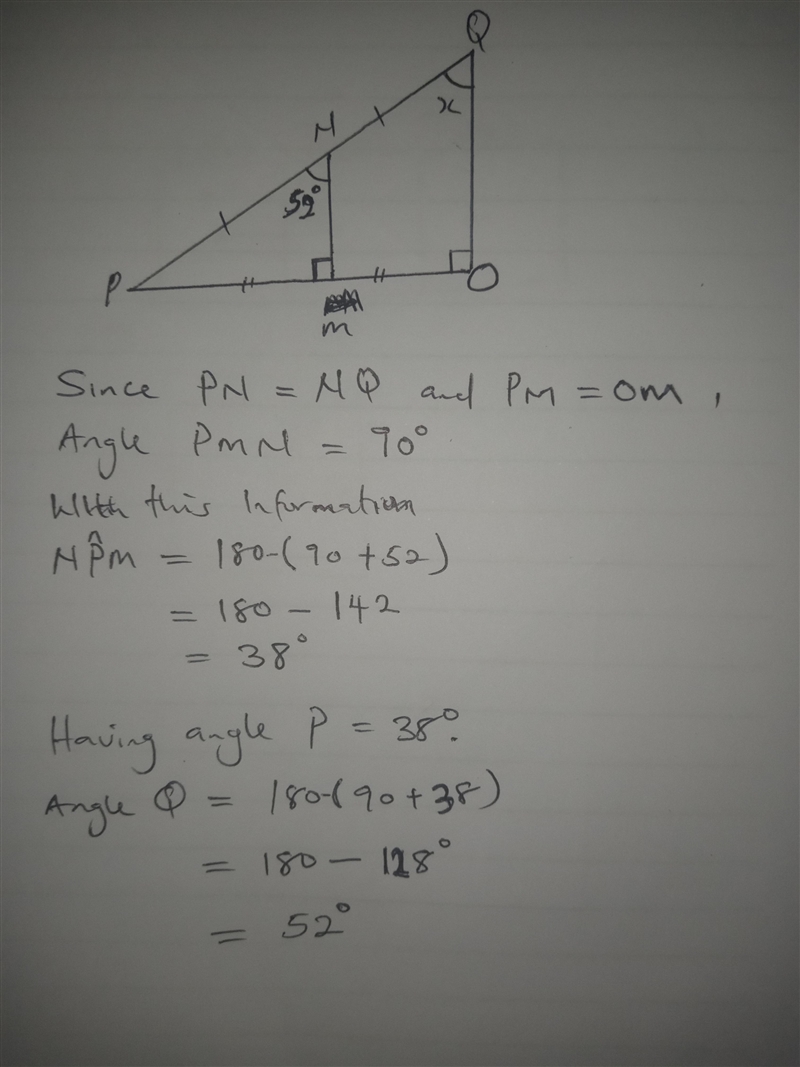 Q
x
N
59°
P
O
m
Since PN = NQ and PM = OM,
Angle PMN = 90°
With this Information
NP̂M = 180-(90+52)
= 180 - 142
= 38°
Having angle P = 38°.
Angle Q = 180-(90+38)
= 180 - 128°
= 52°